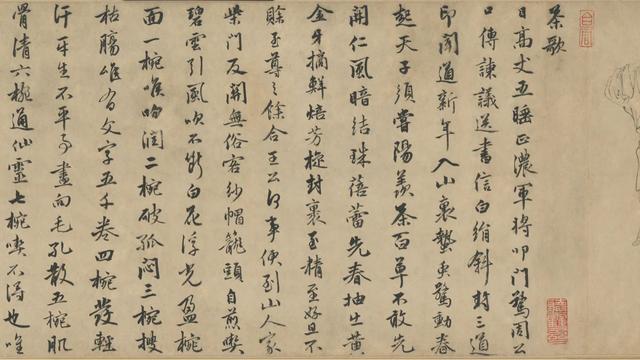 茶歌
日高丈五睡正濃軍將叩門驚周公
口傳諫議送書信白絹斜封三道
印聞道新年入山裏蟄虫驚動春
起天子須嘗陽羨茶百草不敢先
開仁風暗結珠蓓蕾先春抽出黃
金牙摘鮮焙芳旋封裹至精至好且不
賒至尊之餘合王公何事便到山人家
柴門反關無俗客紗帽籠頭自煎喫
碧雲引風吹不斷白花浮光盈椀
面一椀喉吻潤二椀破孤悶三椀搜
枯腸唯有文字五千卷四椀發輕
汗平生不平事盡向毛孔散五椀肌
骨清六椀通仙靈七椀喫不得也唯